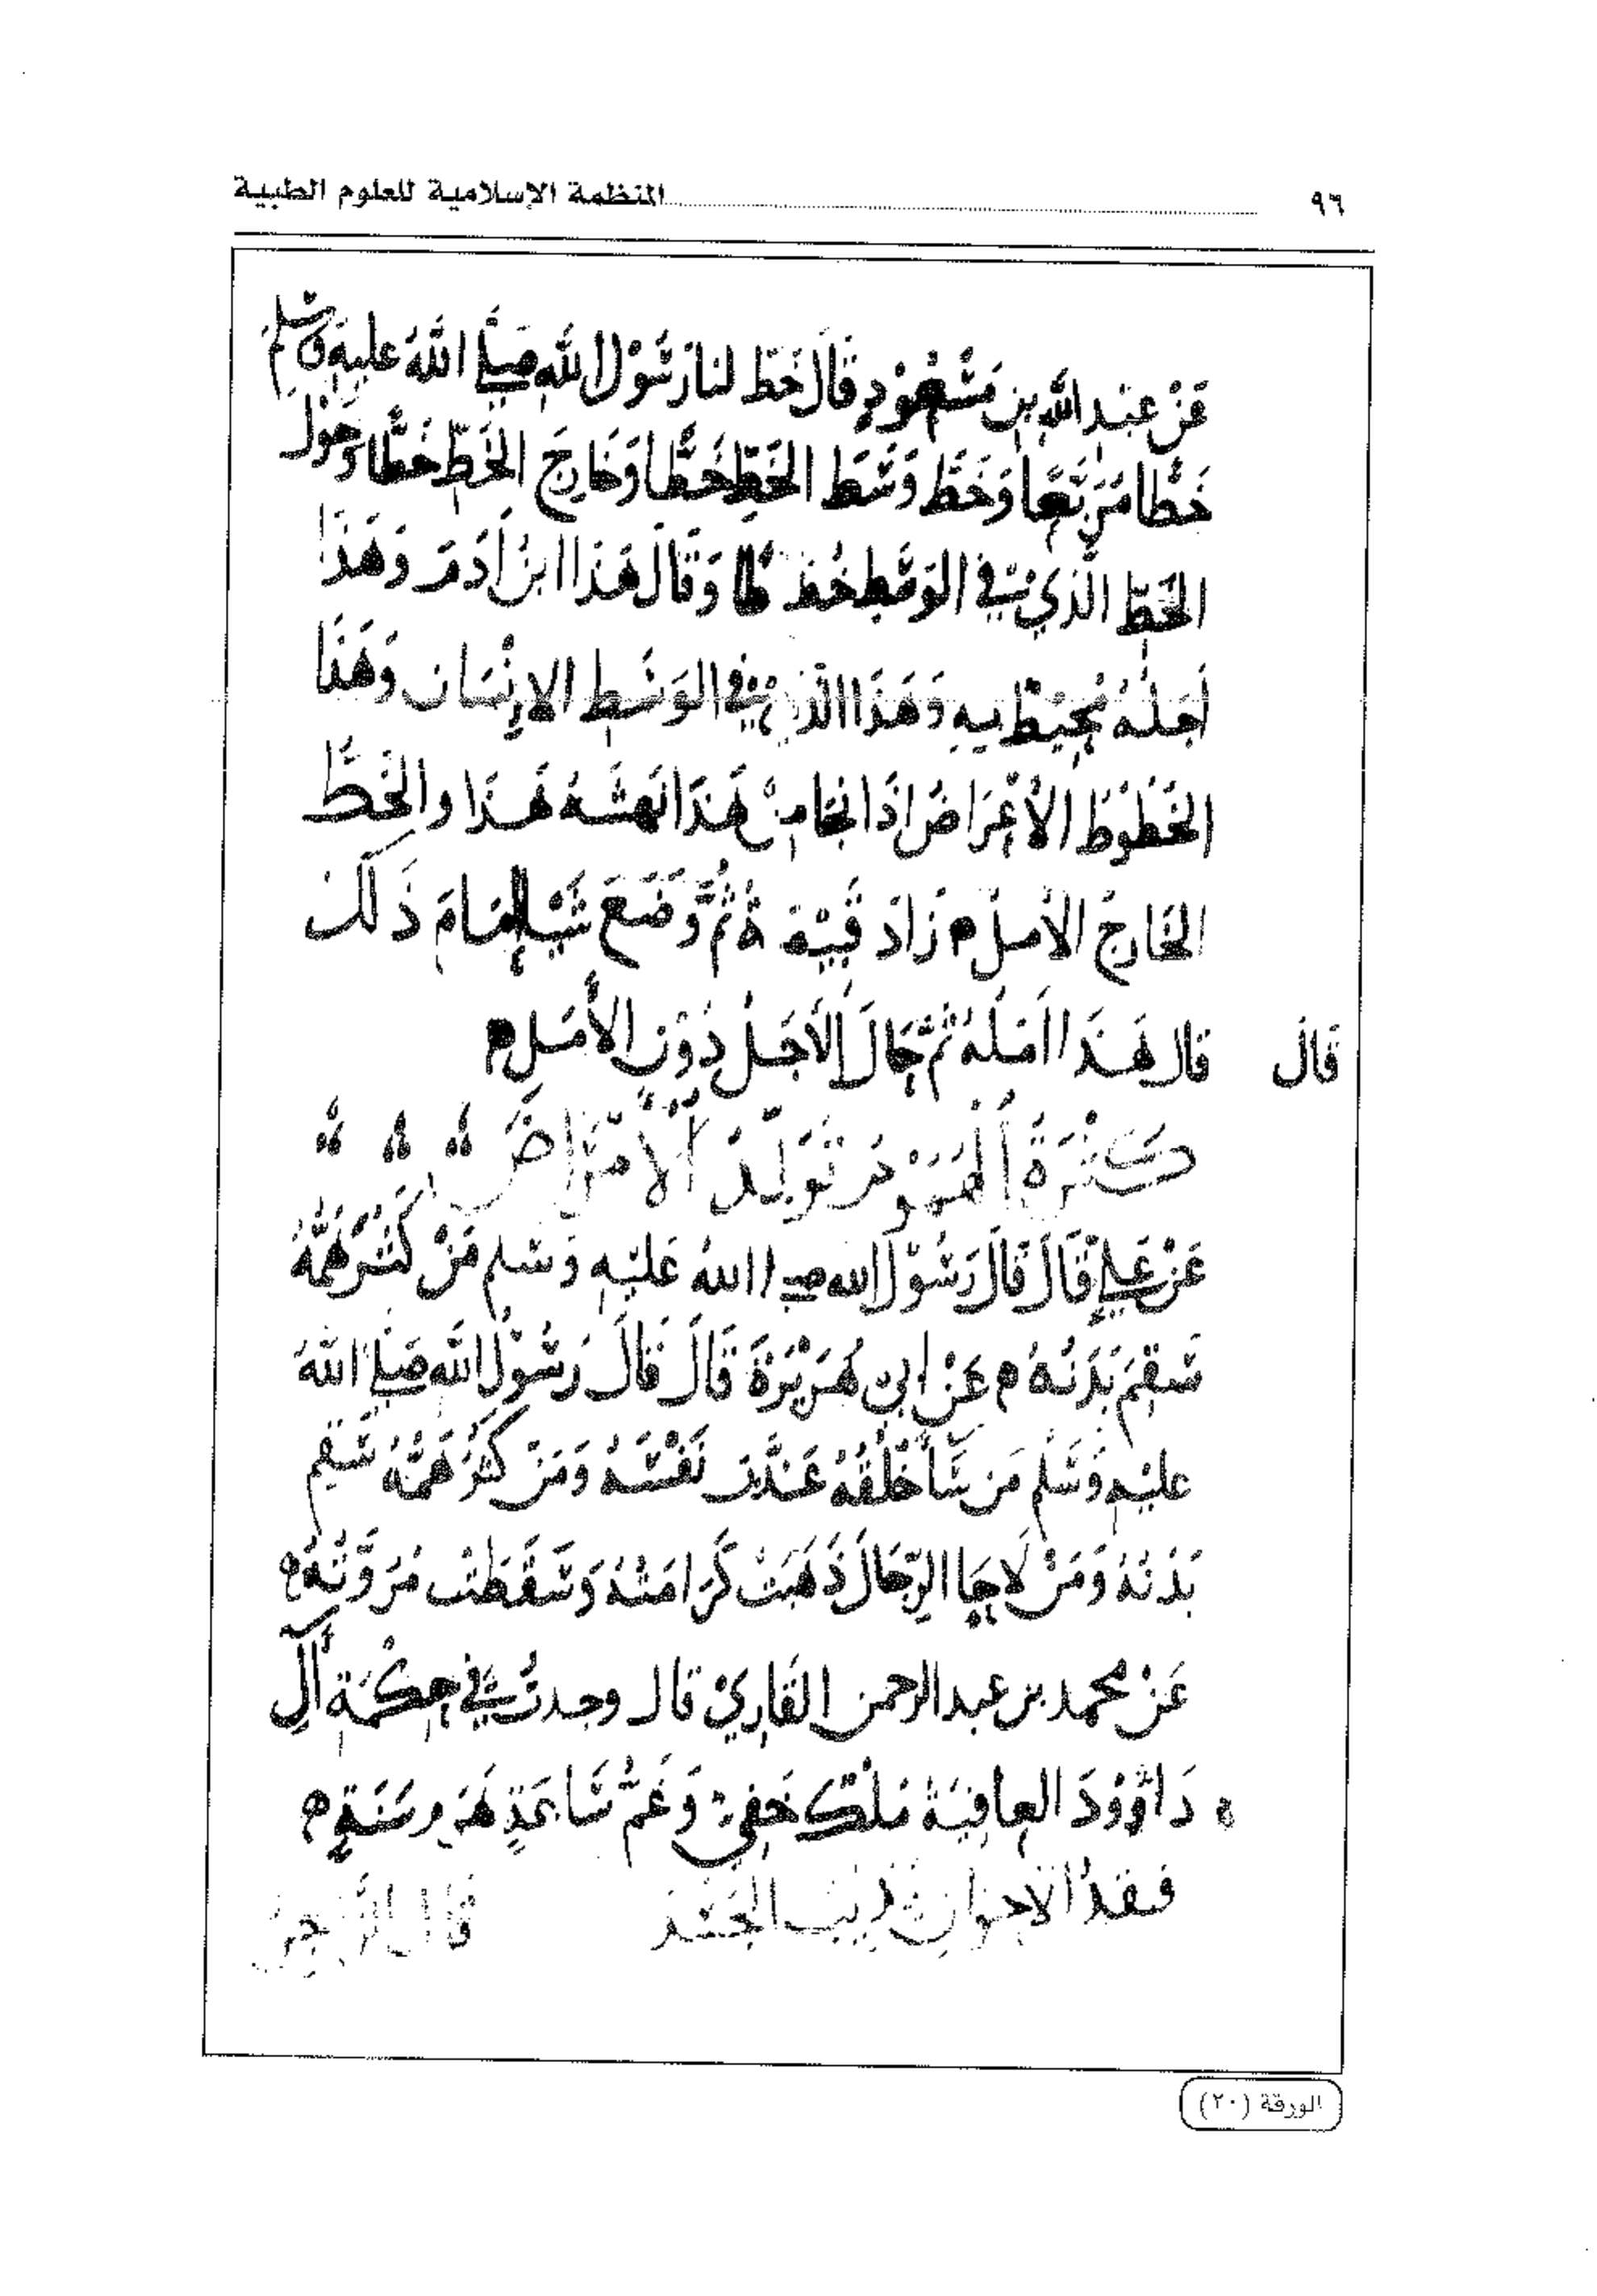 ٩٦ المنظمة الإسلامية للعلوم الطبية
عَنْ عبْد الله بن مَسْعُوْدٍ قَالَ خَطَ لنا رَسُوْلُ اللهِ صَلَّى اللهُ عليه وَسلم
خَطًّا مُرَبَّعًا وَخَطَّ وَسَط الخَطِّ خَطًّا وَخَارِجَ الخَطِّ خَطًّا وَحَوْلَ
الخَطِّ الَّذِي فِي الوَسَطِ خُطُوطًا وَقَالَ هَذَا ابنُ اَدَمَ وَهَذَا
اَجلُهُ مُحِيْطٌ بِهِ وَهَذَا الَّذِي فِي الوَسَطِ الاِنْسَان وَهَذَا
الخُطُوْطُ الأَعْرَاضُ اِذَا نَجَا مِنْ هَذَا نَهَشَهُ هَذَا والخَطُّ
الخَارِجُ الأَملُ ه زَادَ قُتَيْبَة ثُمَّ وَضَعَ اَمَامَ ذَلكَ
قَالَ قال هَذَا اَمَلُهُ ثُمَّ حَالَ الأَجَلُ دُوْنَ الأَمَلِ ه
كَثْرَةُ الهُمُوْم تُوَلِّدُ الأَمْرَاضَ
عَنْ عَلِيٍّ قَالَ قَالَ رَسُوْلُ الله صلى اللهُ عَليْهِ وَسَلم مَنْ كَثُرَ هَمُّهُ
سَقِمَ بَدَنُهُ ه عَنْ اَبي هُرَيْرَةَ قَالَ قَالَ رَسُوْلُ اللهِ صَلى اللهُ
عليْهِ وَسَلم مَن سَاَ خُلُقُهُ عَذَّبَ نَفْسَهُ وَمَنْ كَثُرَ هَمُّهُ سَقِم
بَدَنُهُ وَمَنْ لاحَا الرِّجَالَ ذَهَبَتْ كَرَامَتُهُ وَسَقَطَتْ مُرَوَّتُهُ ه
عَنْ محمد بن عبد الرحمن القَارِيْ قال وجدتُ فِي حِكْمَةِ آلِ
دَاوُوْدَ العافِيَةُ مُلْكٌ خَفِيٌّ وَغَمُّ سَاعَةٍ هَرَمُ سَنَةٍ ه
فقدُ الاحبَابِ الجَسَدَ قَالَ
الورقة (٢٠)